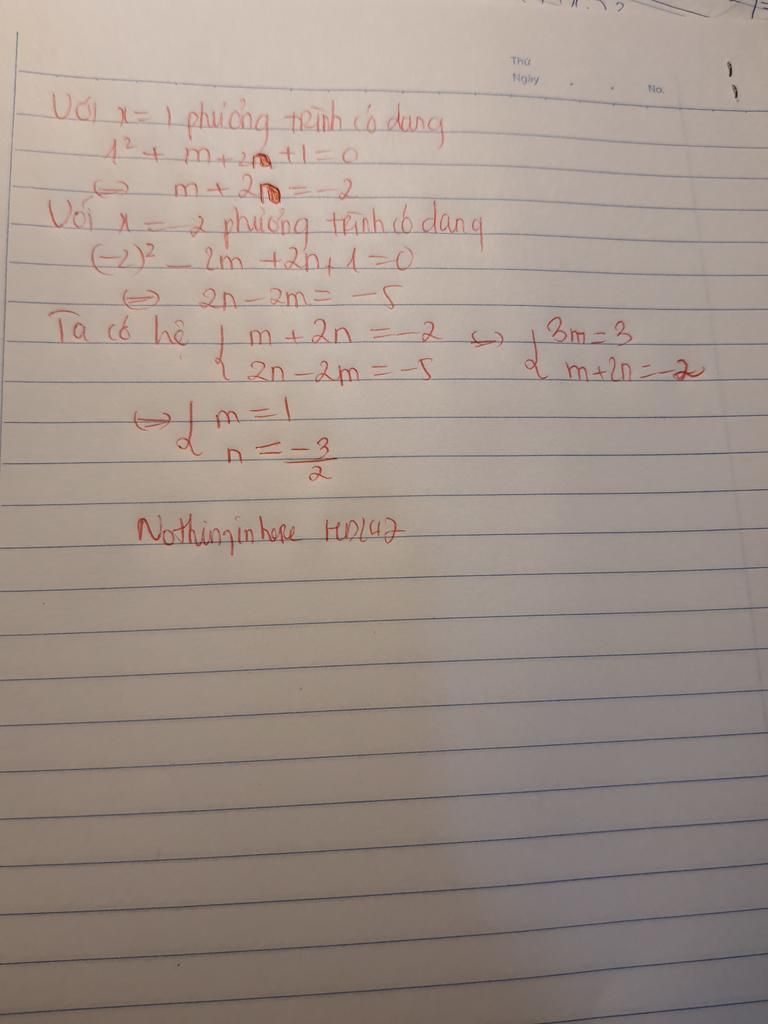 Thứ
Ngày . . No.
Với x = 1 phương trình có dạng
1² + m + 2n + 1 = 0
⇔ m + 2n = -2
Với x = -2 phương trình có dạng
(-2)² - 2m + 2n + 1 = 0
⇔ 2n - 2m = -5
Ta có hệ { m + 2n = -2 ⇔ { 3m = 3
2n - 2m = -5 m + 2n = -2
⇔ { m = 1
n = -3/2
Nothinginhere